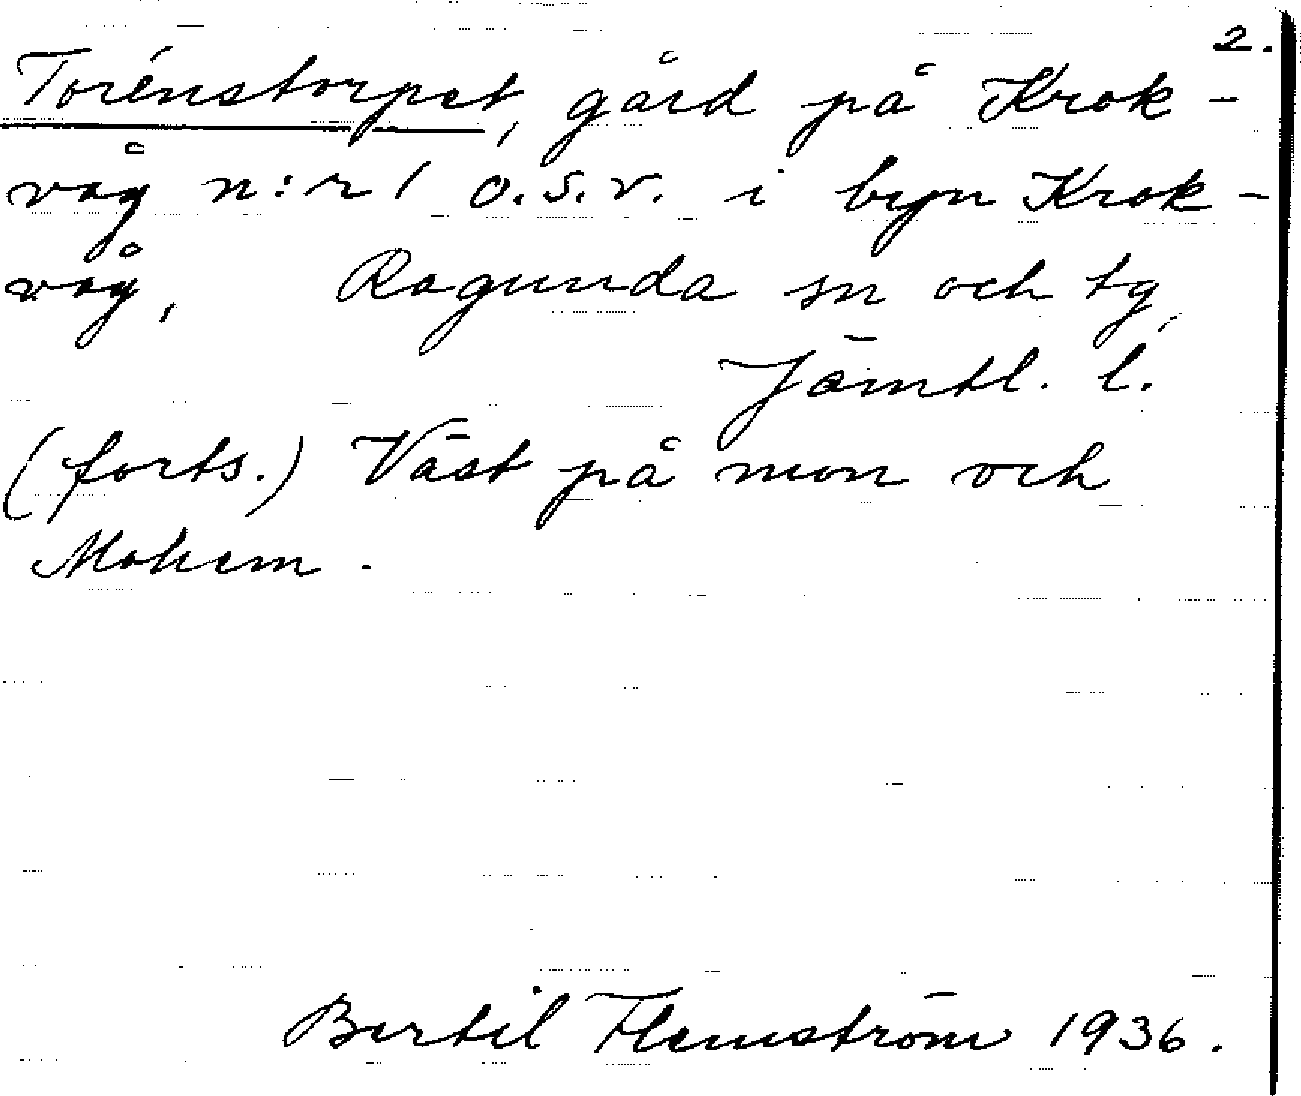 2.
Torénstorpet, gård på Krok-
våg n:r 1 o.s.v. i byn Krok-
våg, Ragunda sn och tg
Jämtl. l.
(forts.) Väst på mon och
Mohem.
Bertil Flemström 1936.